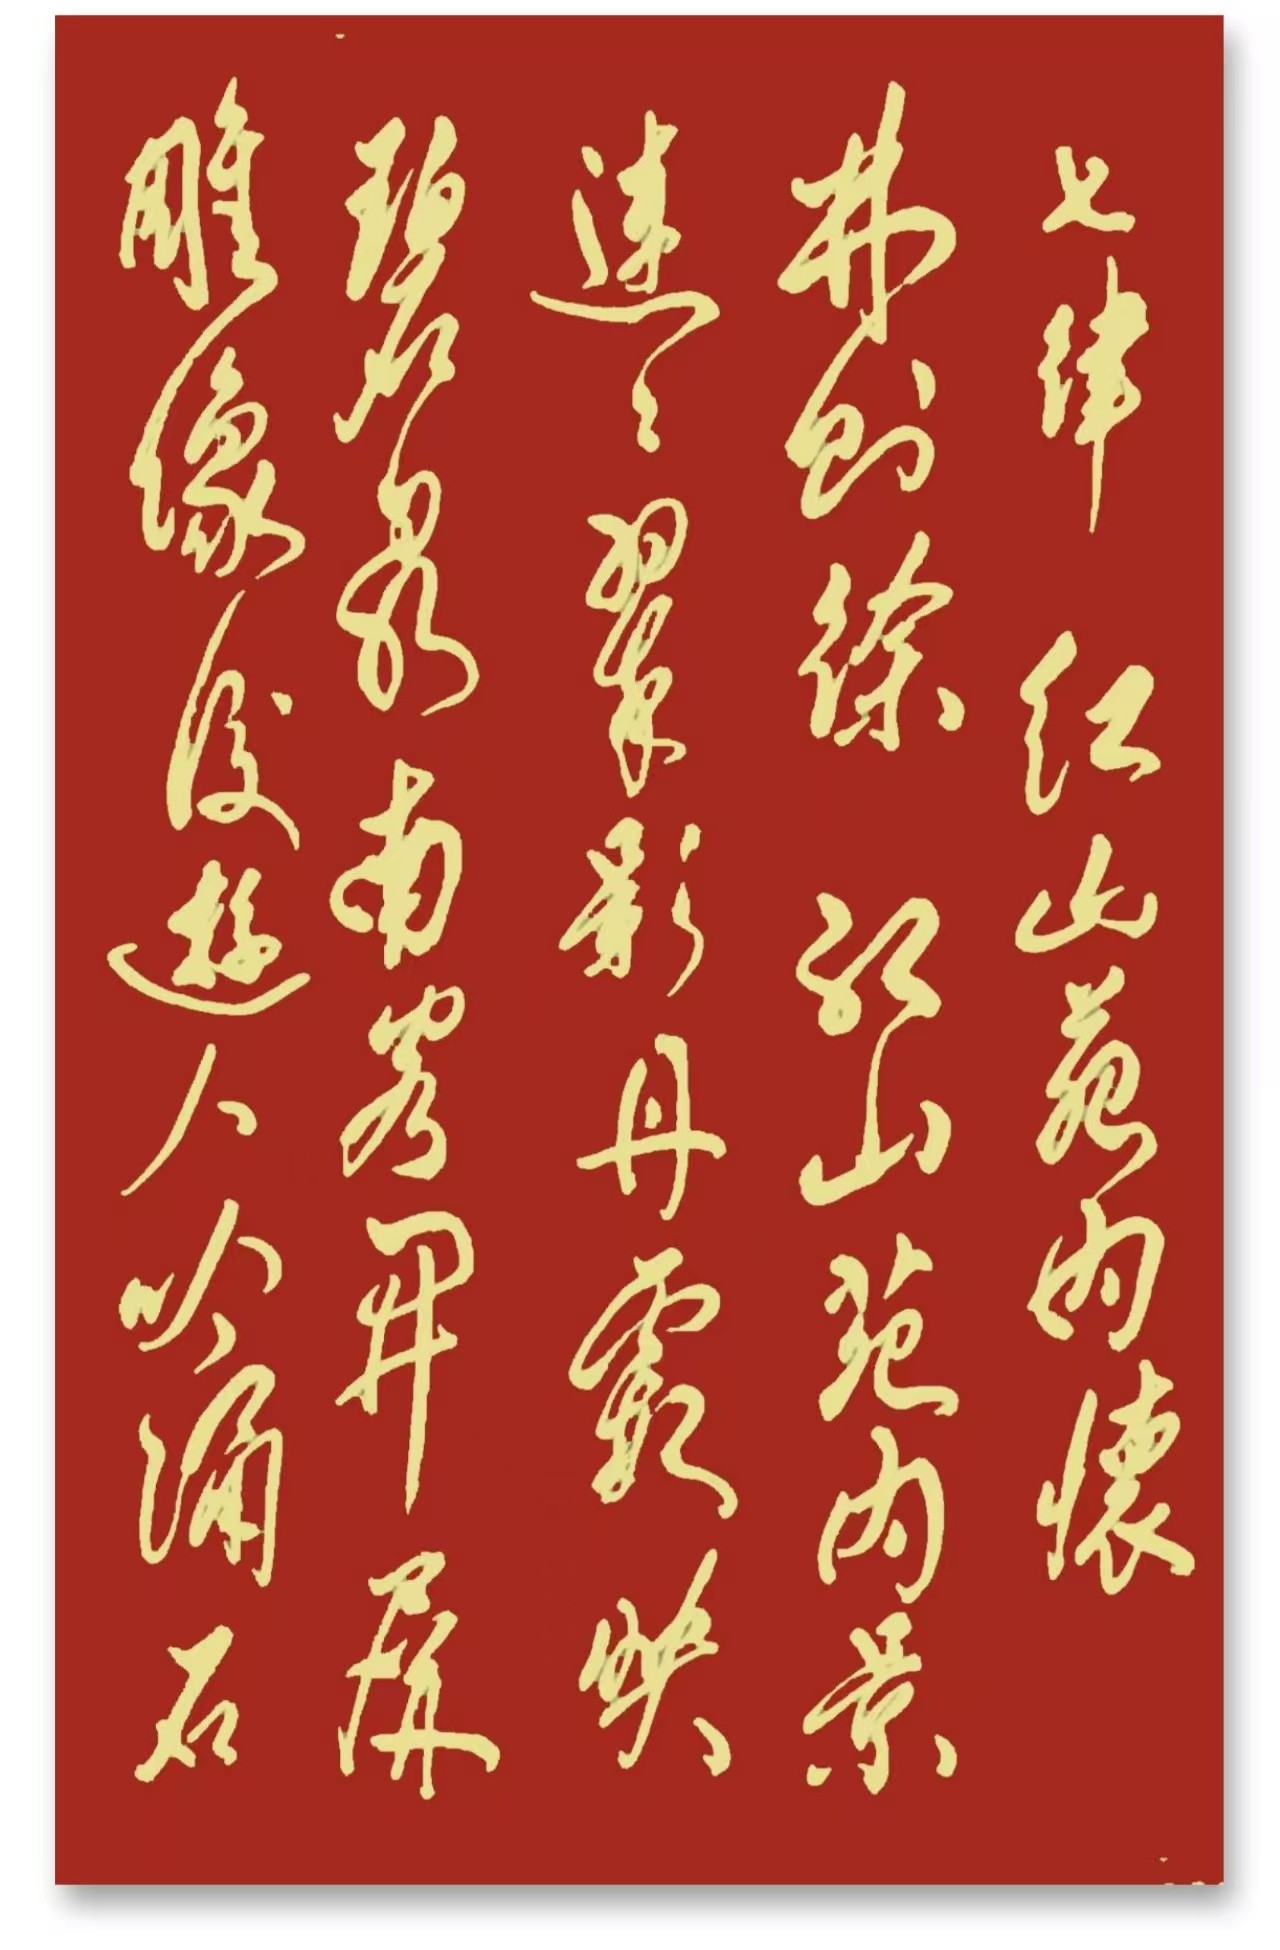 七律 红山苑内怀
林则徐 红山苑内景
连连翠影丹霞映
碧泉南客开屏
雕像后游人吟诵石